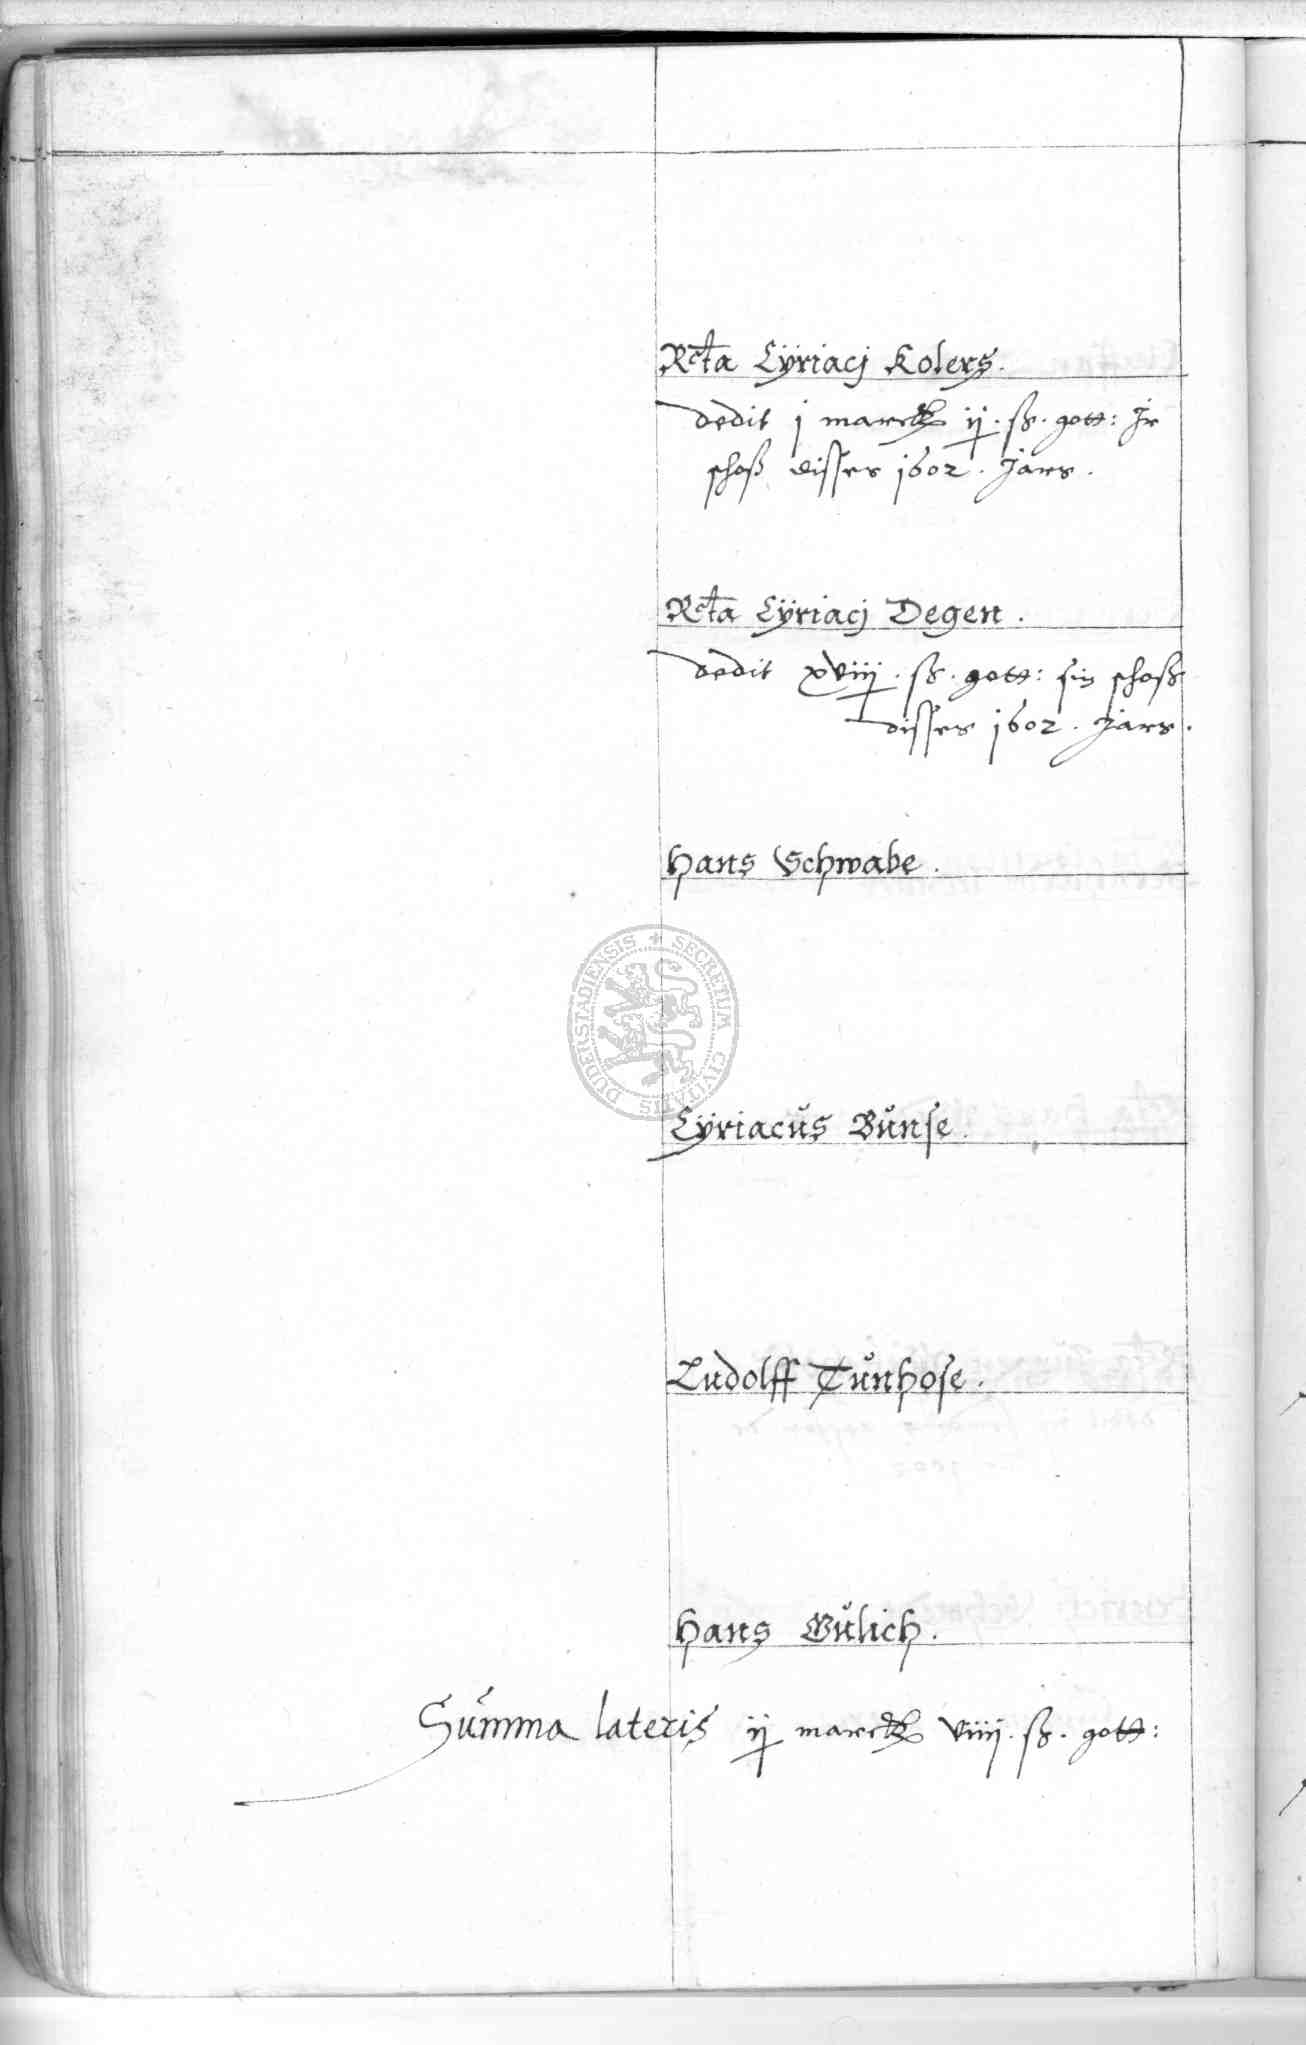 Rcta Cÿriacj Kolers.
dedit j marck ij. ß. gott: Jr
schoß disses 1602. Jars.
Rcta Cÿriacj Degen.
dedit xviij. ß. gott: sin schoß
disses 1602. Jars.
Hans Schwabe.
SECRETUM CIVITATIS DUDERSTADIENSIS
Cÿriacus Bunse.
Ludolff Tunhose.
Hans Gulich.
Summa lateris ij marck viiij. ß. gott: